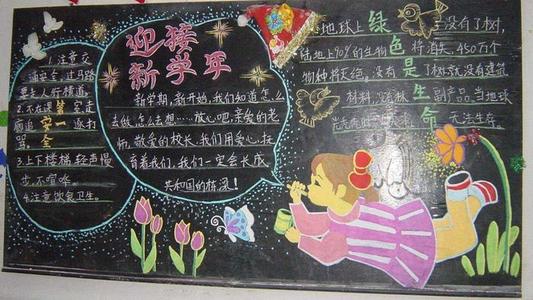 1.注意交
通安全,过马路
要走人行横道。
2.不在课室走
廊追逐打
骂。
安全
3.上下楼梯轻声慢
步,不喧哗。
4.注意饮食卫生。
迎接
新学年
新学期,新开始,我们知道怎么
去做,怎么去想……放心吧,亲爱的老
师,敬爱的校长,我们用爱心,抚
育着我们,我们一定会长成
共和国的栋梁!
绿色是生命
地球上没有了树,
陆地上90%的生物将消失,450万个
物种将灭绝。没有了树就没有建筑
材料,没有林副产品,当地球
无法生存。